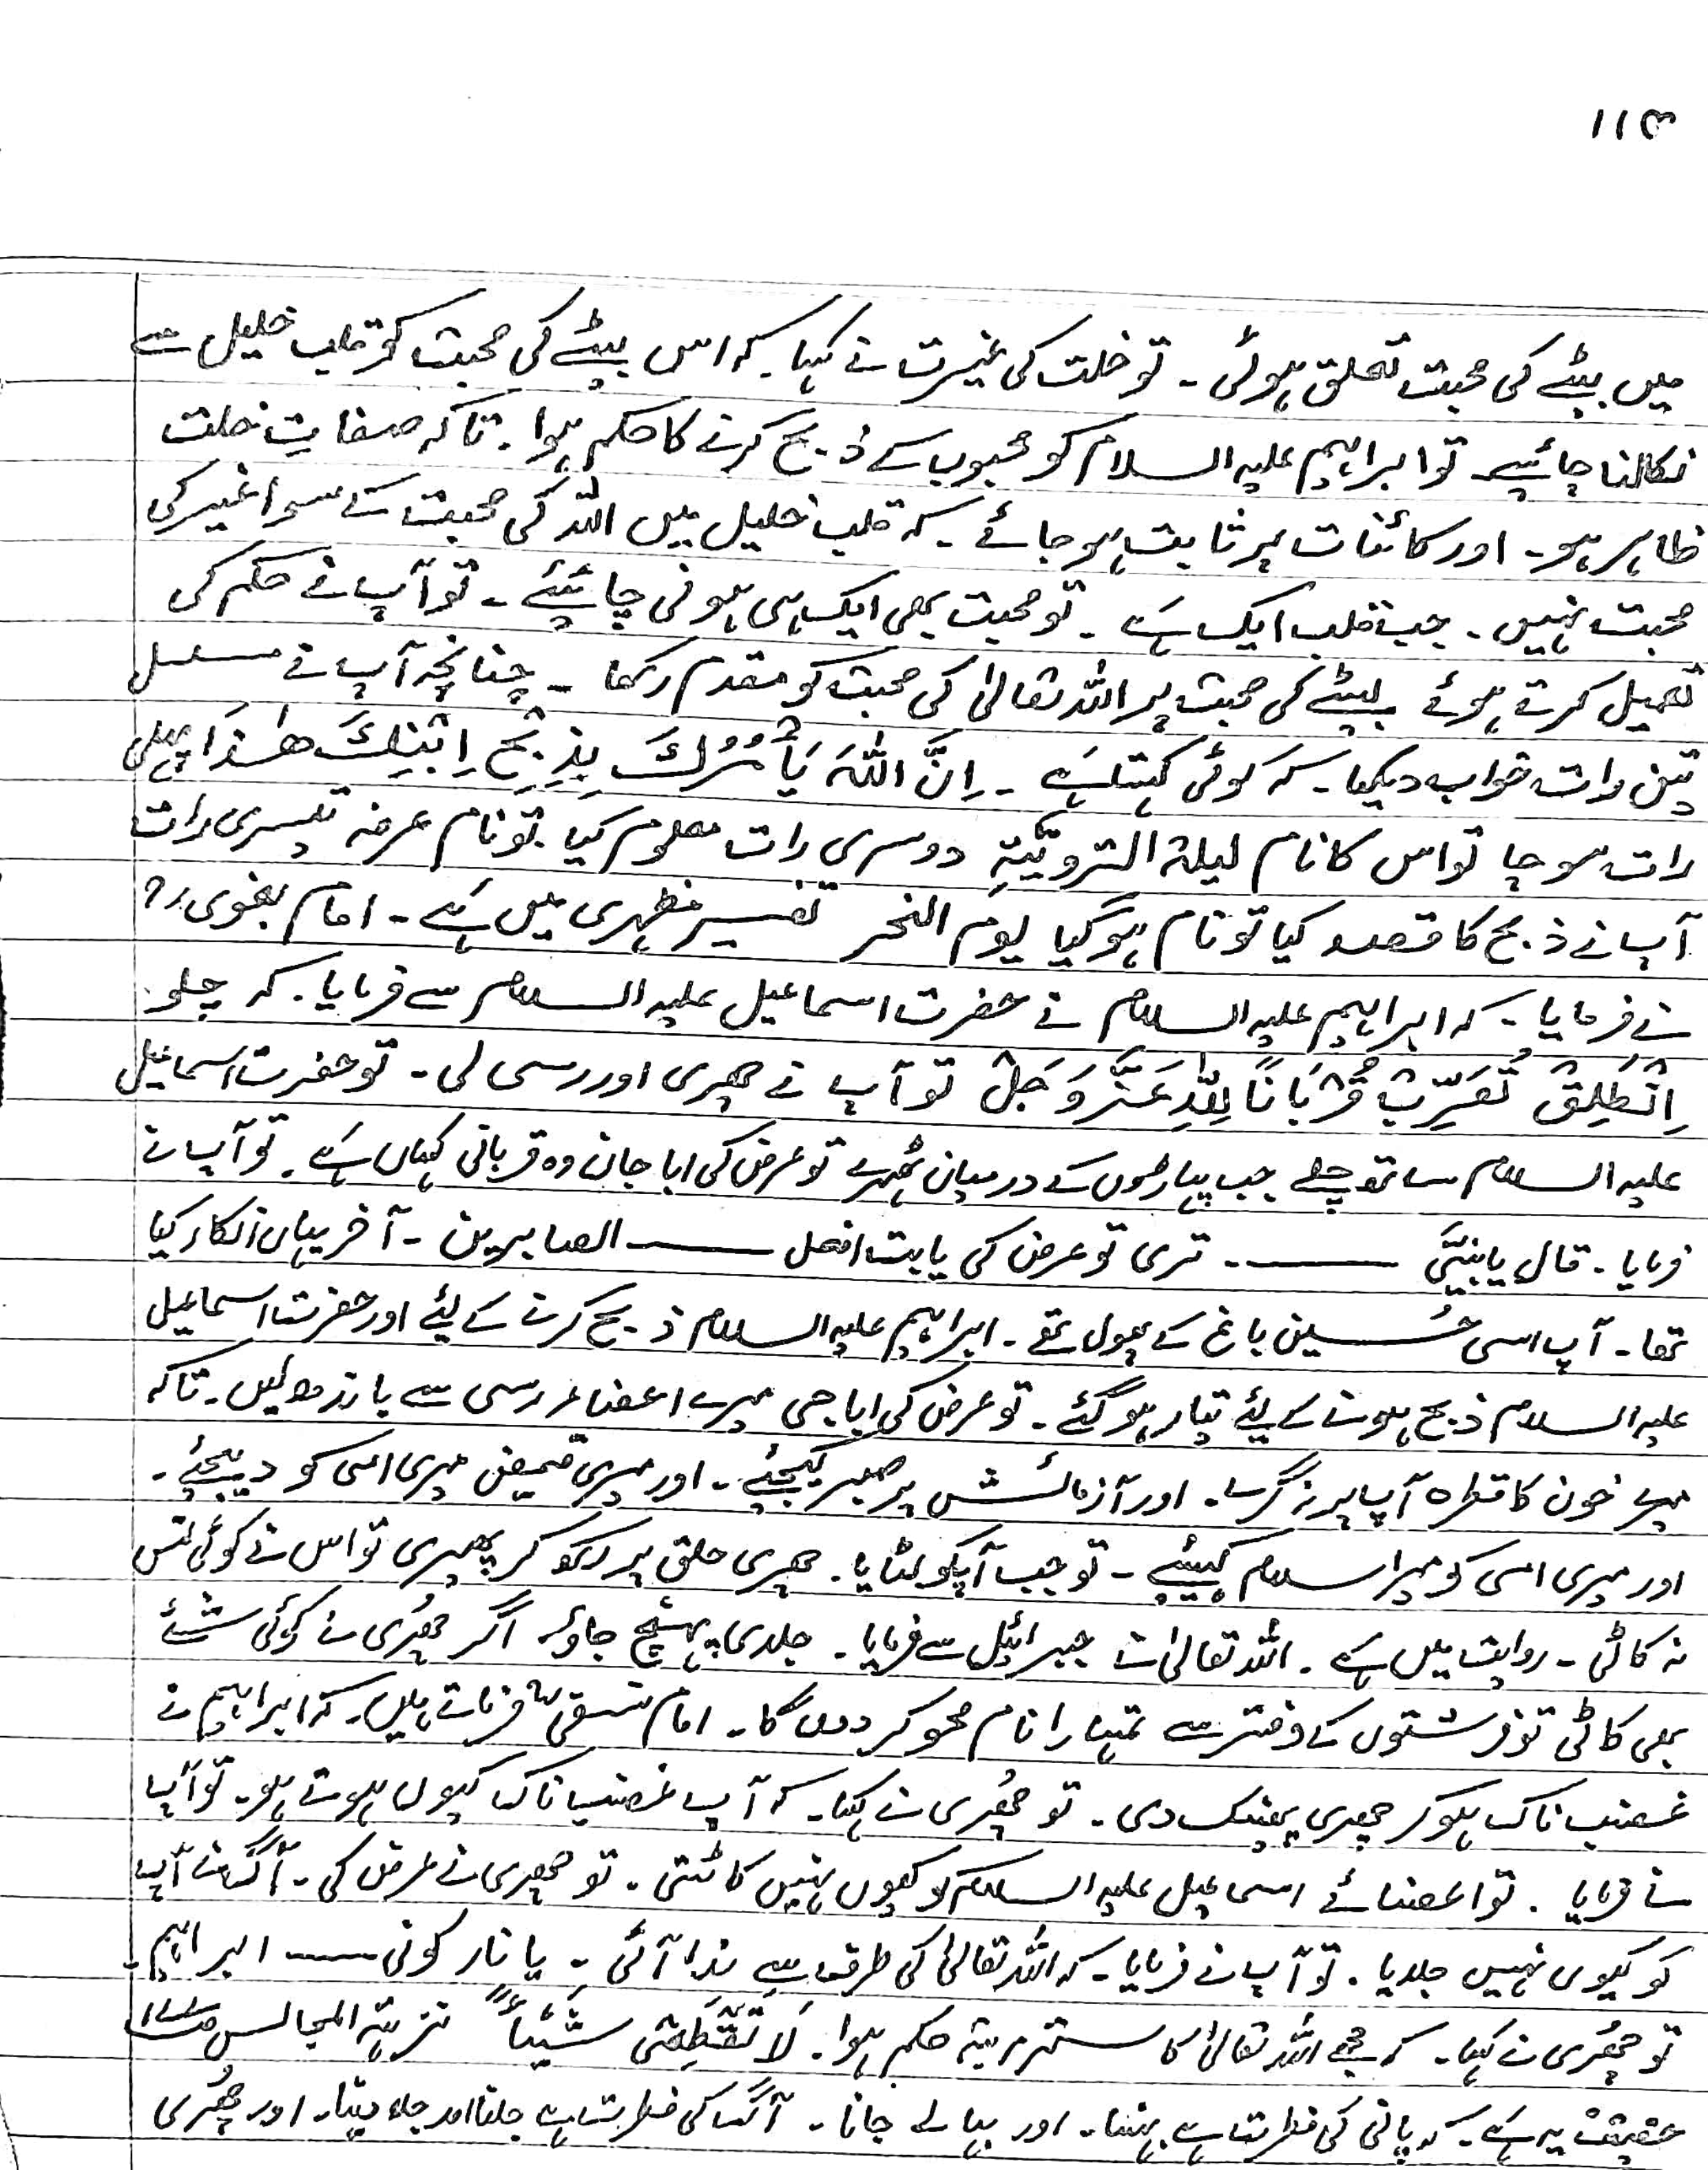 ۱۱۵
میں بیٹے کی محبت تعلق ہوئی ۔ تو خلت کی غیرت نے کہا ۔ کہ اس بیٹے کی محبت کو قلب خلیل سے
نکالنا چاہئیے تو ابراہیم علیہ السلام کو محبوب کے ذبح کرنے کا حکم ہوا ۔ تاکہ صفاتِ خلت
ظاہر ہو ۔ اور کائنات پر ثابت ہو جائے ۔ کہ قلب خلیل میں اللہ کی محبت کے سوا غیر کی
محبت نہیں ۔ جب قلب ایک ہے ۔ تو محبت بھی ایک ہی ہونی چاہئیے ۔ تو آپ نے حکم کی
تعمیل کرتے ہوئے بیٹے کی محبت پر اللہ تعالیٰ کی محبت کو مقدم رکھا ۔ چنانچہ آپ نے مسلسل
تین رات خواب دیکھا ۔ کہ کوئی کہتا ہے ۔ اِنَّ اللّٰہَ یَأْمُرُكَ بِذِبْحِ اِبْنِكَ ھٰذَا پہلی
رات سوچا تو اس کا نام لیلۃ الترویّۃِ دوسری رات معلوم کیا تو نام عرفہ تیسری رات
آپ نے ذبح کا قصد کیا تو نام ہوگیا یوم النحر تفسیر مظہری میں ہے ۔ امام بغوی رح
نے فرمایا ۔ کہ ابراہیم علیہ السلام نے حضرت اسماعیل علیہ السلام سے فرمایا ۔ کہ چلو
اِنْطَلِقْ نُقَرِّبْ قُرْبَاناً لِلّٰہِ عَزَّ وَجَلْ تو آپ نے چھری اور رسی لی ۔ تو حضرت اسماعیل
علیہ السلام ساتھ چلے جب پہاڑوں کے درمیان ٹھہرے تو عرض کی ابا جان وہ قربانی کہاں ہے ۔ تو آپ نے
فرمایا ۔ قال یابنیَّ ——— ۔ تری تو عرض کی یابت افعل ——— الصابرین ۔ آخر یہاں انکار کیا
تھا ۔ آپ اسی حُسین باغ کے پھول تھے ۔ ابراہیم علیہ السلام ذبح کرنے کے لیئے اور حضرت اسماعیل
علیہ السلام ذبح ہونے کے لیئے تیار ہوگئے ۔ تو عرض کی ابا جی میرے اعضاء رسی سے باندھ لیں ۔ تاکہ
میرے خون کا قطرہ آپ پر نہ گرے ۔ اور آزمائش پر صبر کیجئے ۔ اور میری قمیض میری امی کو دیجئے ۔
اور میری امی کو میرا سلام کہیئے ۔ تو جب آپکو لٹایا ۔ چھری حلق پر رکھ کر پھیری تو اس نے کوئی نس
نہ کاٹی ۔ روایت میں ہے ۔ اللہ تعالیٰ نے جبرائیل سے فرمایا ۔ جلدی پہنچ جاؤ اگر چھُری نے کوئی شئے
بھی کاٹی تو فرشتوں کے دفتر سے تمہارا نام محو کر دوں گا ۔ امام نسفی رح فرماتے ہیں ۔ کہ ابراہیم نے
غضب ناک ہوکر چھری پھینک دی ۔ تو چھُری نے کہا ۔ کہ آپ غضب ناک کیوں ہوتے ہو ۔ تو آپ
نے فرمایا ۔ تو اعضائے اسماعیل علیہ السلام کو کیوں نہیں کاٹتی ۔ تو چھری نے عرض کی ۔ آگ نے آپ
کو کیوں نہیں جلایا ۔ تو آپ نے فرمایا ۔ کہ اللہ تعالیٰ کی طرف سے ندا آئی ۔ یا نار کونی —— ابراہیم ۔
تو چھُری نے کہا ۔ کہ مجھے اللہ تعالیٰ کا ستر مرتبہ حکم ہوا ۔ لَا تَقْطَعِیْ شَیْئاً نزہۃ المجالس
حقیقت یہ ہے ۔ کہ پانی کی فطرت ہے بہنا ۔ اور بہا لے جانا ۔ آگ کی فطرت ہے جلنا اور جلا دینا ۔ اور چھُری